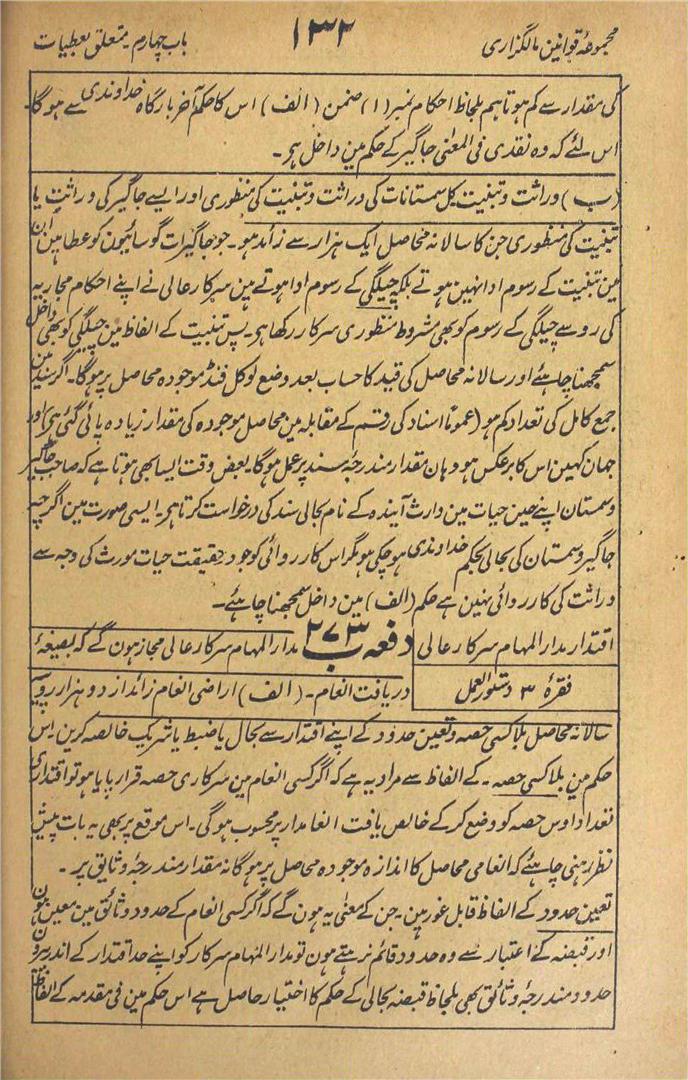 مجموعۂ قوانین مالگذاری
۱۳۲
باب چہارم متعلق بعطیات
کی مقدار سے کم ہو تاہم بلحاظ احکام نمبر (۱) ضمن (الف) اس کا حکم آخر بارگاہ خداوندی سے ہوگا۔
اس لئے کہ وہ نقدی فی المعنیٰ جاگیر کے حکم مین داخل ہر۔
(ب) وراثت و تبنیت کل سمستانات کی وراثت و تبنیت کی منظوری اور ایسے جاگیر کی وراثت یا
تبنیت کی منظوری جن کا سالانہ محاصل ایک ہزار سے زائد ہو۔ جو جاگیرات گوسائیون کو عطا ہین ان
مین تبنیت کے رسوم ادا نہین ہوتے بلکہ چیلگی کے رسوم ادا ہوتے ہین سرکار عالی نے اپنے احکام مجاریہ
کی رو سے چیلگی کے رسوم کو بھی مشروط منظوری سرکار رکھا ہی۔ پس تبنیت کے الفاظ مین چیلگی کو بھی داخل
سمجھنا چاہئے اور سالانہ محاصل کی قید کا حساب بعد وضع لوکل فنڈ موجودہ محاصل پر ہوگا۔ اگر سند مین
جمع کامل کی تعداد کم ہو (عموماً اسناد کی رقم کے مقابلہ مین محاصل موجودہ کی مقدار زیادہ پائی گئی ہی) اور
جہان کہین اس کا برعکس ہو وہان مقدار مندرجۂ سند پر عمل ہوگا۔ بعض وقت ایسا بھی ہوتا ہے کہ صاحب جاگیر
و سمستان اپنے حین حیات مین وارث آیندہ کے نام بحالی سند کی درخواست کرتا ہی۔ ایسی صورت مین اگرچہ
جاگیر و سمستان کی بحالی بحکم خداوندی ہوچکی ہو مگر اس کارروائی کو جو درحقیقت حیات مورث کی وجہ سے
وراثت کی کارروائی نہین ہے حکم (الف) مین داخل سمجھنا چاہئے۔
اقتدار مدارالمہام سرکار عالی
فقرۂ ۳ دستور العمل
دفعہ ۲۷۳ ب مدارالمہام سرکار عالی مجاز ہون گے کہ بصیغۂ
دریافت انعام۔ (الف) اراضی انعام زائد از دو ہزار روپیہ
سالانہ محاصل بلا کسی حصہ و تعین حدود کے اپنے اقتدار سے بحال یا ضبط یا شریک خالصہ کرین۔ اس
حکم مین بلا کسی حصہ۔ کے الفاظ سے مراد یہ ہے کہ اگر کسی انعام مین سرکاری حصہ قرار پایا ہو تو اقتداری
تعداد اوس حصہ کو وضع کرکے خالص یافت انعامدار پر محسوب ہوگی۔ اس موقع پر بھی یہ بات پیش
نظر رہنی چاہئے کہ انعامی محاصل کا اندازہ موجودہ محاصل پر ہوگا نہ مقدار مندرجۂ وثایق پر۔
تعین حدود کے الفاظ قابل غور ہین۔ جن کے معنی یہ ہون گے کہ اگر کسی انعام کے حدود وثائق مین معین ہون
اور قبضہ کے اعتبار سے وہ حدود قائم نہ رہتے ہون تو مدارالمہام سرکار کو اپنے حد اقتدار کے اندر بیرون
حدود مندرجۂ وثائق بھی بلحاظ قبضہ بحالی کے حکم کا اختیار حاصل ہے اس حکم مین فی مقدمہ کے الفاظ